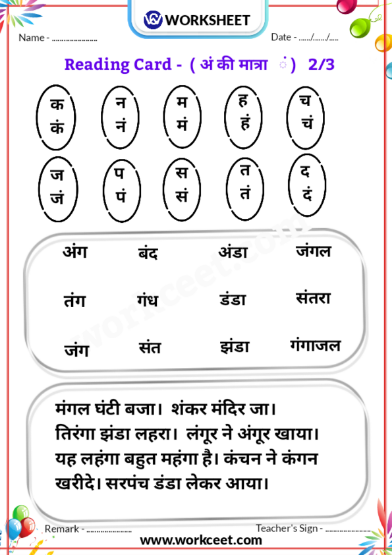 WORKSHEET
Name - ........................ Date - ....../....../.....
Reading Card - ( अं की मात्रा  ं ) 2/3
क न म ह च
कं नं मं हं चं
ज प स त द
जं पं सं तं दं
अंग बंद अंडा जंगल
तंग गंध डंडा संतरा
जंग संत झंडा गंगाजल
मंगल घंटी बजा। शंकर मंदिर जा।
तिरंगा झंडा लहरा। लंगूर ने अंगूर खाया।
यह लहंगा बहुत महंगा है। कंचन ने कंगन
खरीदे। सरपंच डंडा लेकर आया।
Remark - ........................ Teacher's Sign - ........................
www.workceet.com